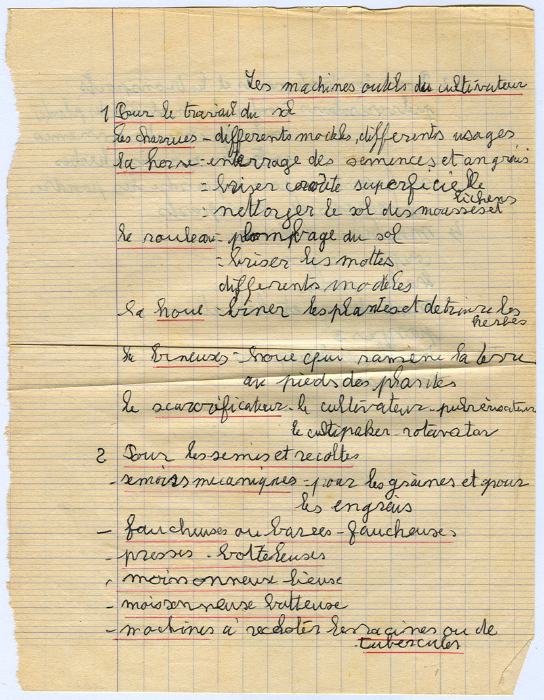 Les machines outils du cultivateur
1 Pour le travail du sol
les charrues - différents modèls, différents usages
la herse - interrage des semences et angrais
= briser croûte superficielle
= nettorger le sol des mousses et lichens
le rouleau - plombage du sol
= briser les mottes
différents modèles
la houe - biner les plantes et detruire les herbes
la bineuse - houe qui ramène la terre
au pieds des plantes
le scarorificateur - le cultivateur - pulverisateur
le cultipaker - rotavator
2 Pour les semis et recoltes
- semoirs mecaniques - pour les graines et pour
les engrais
- faucheuses ou barres - faucheuses
- presses - botteleuses
- moissonneuse lieuse
- moissonneuse batteuse
- machines à recolter les racines ou de
tubercules